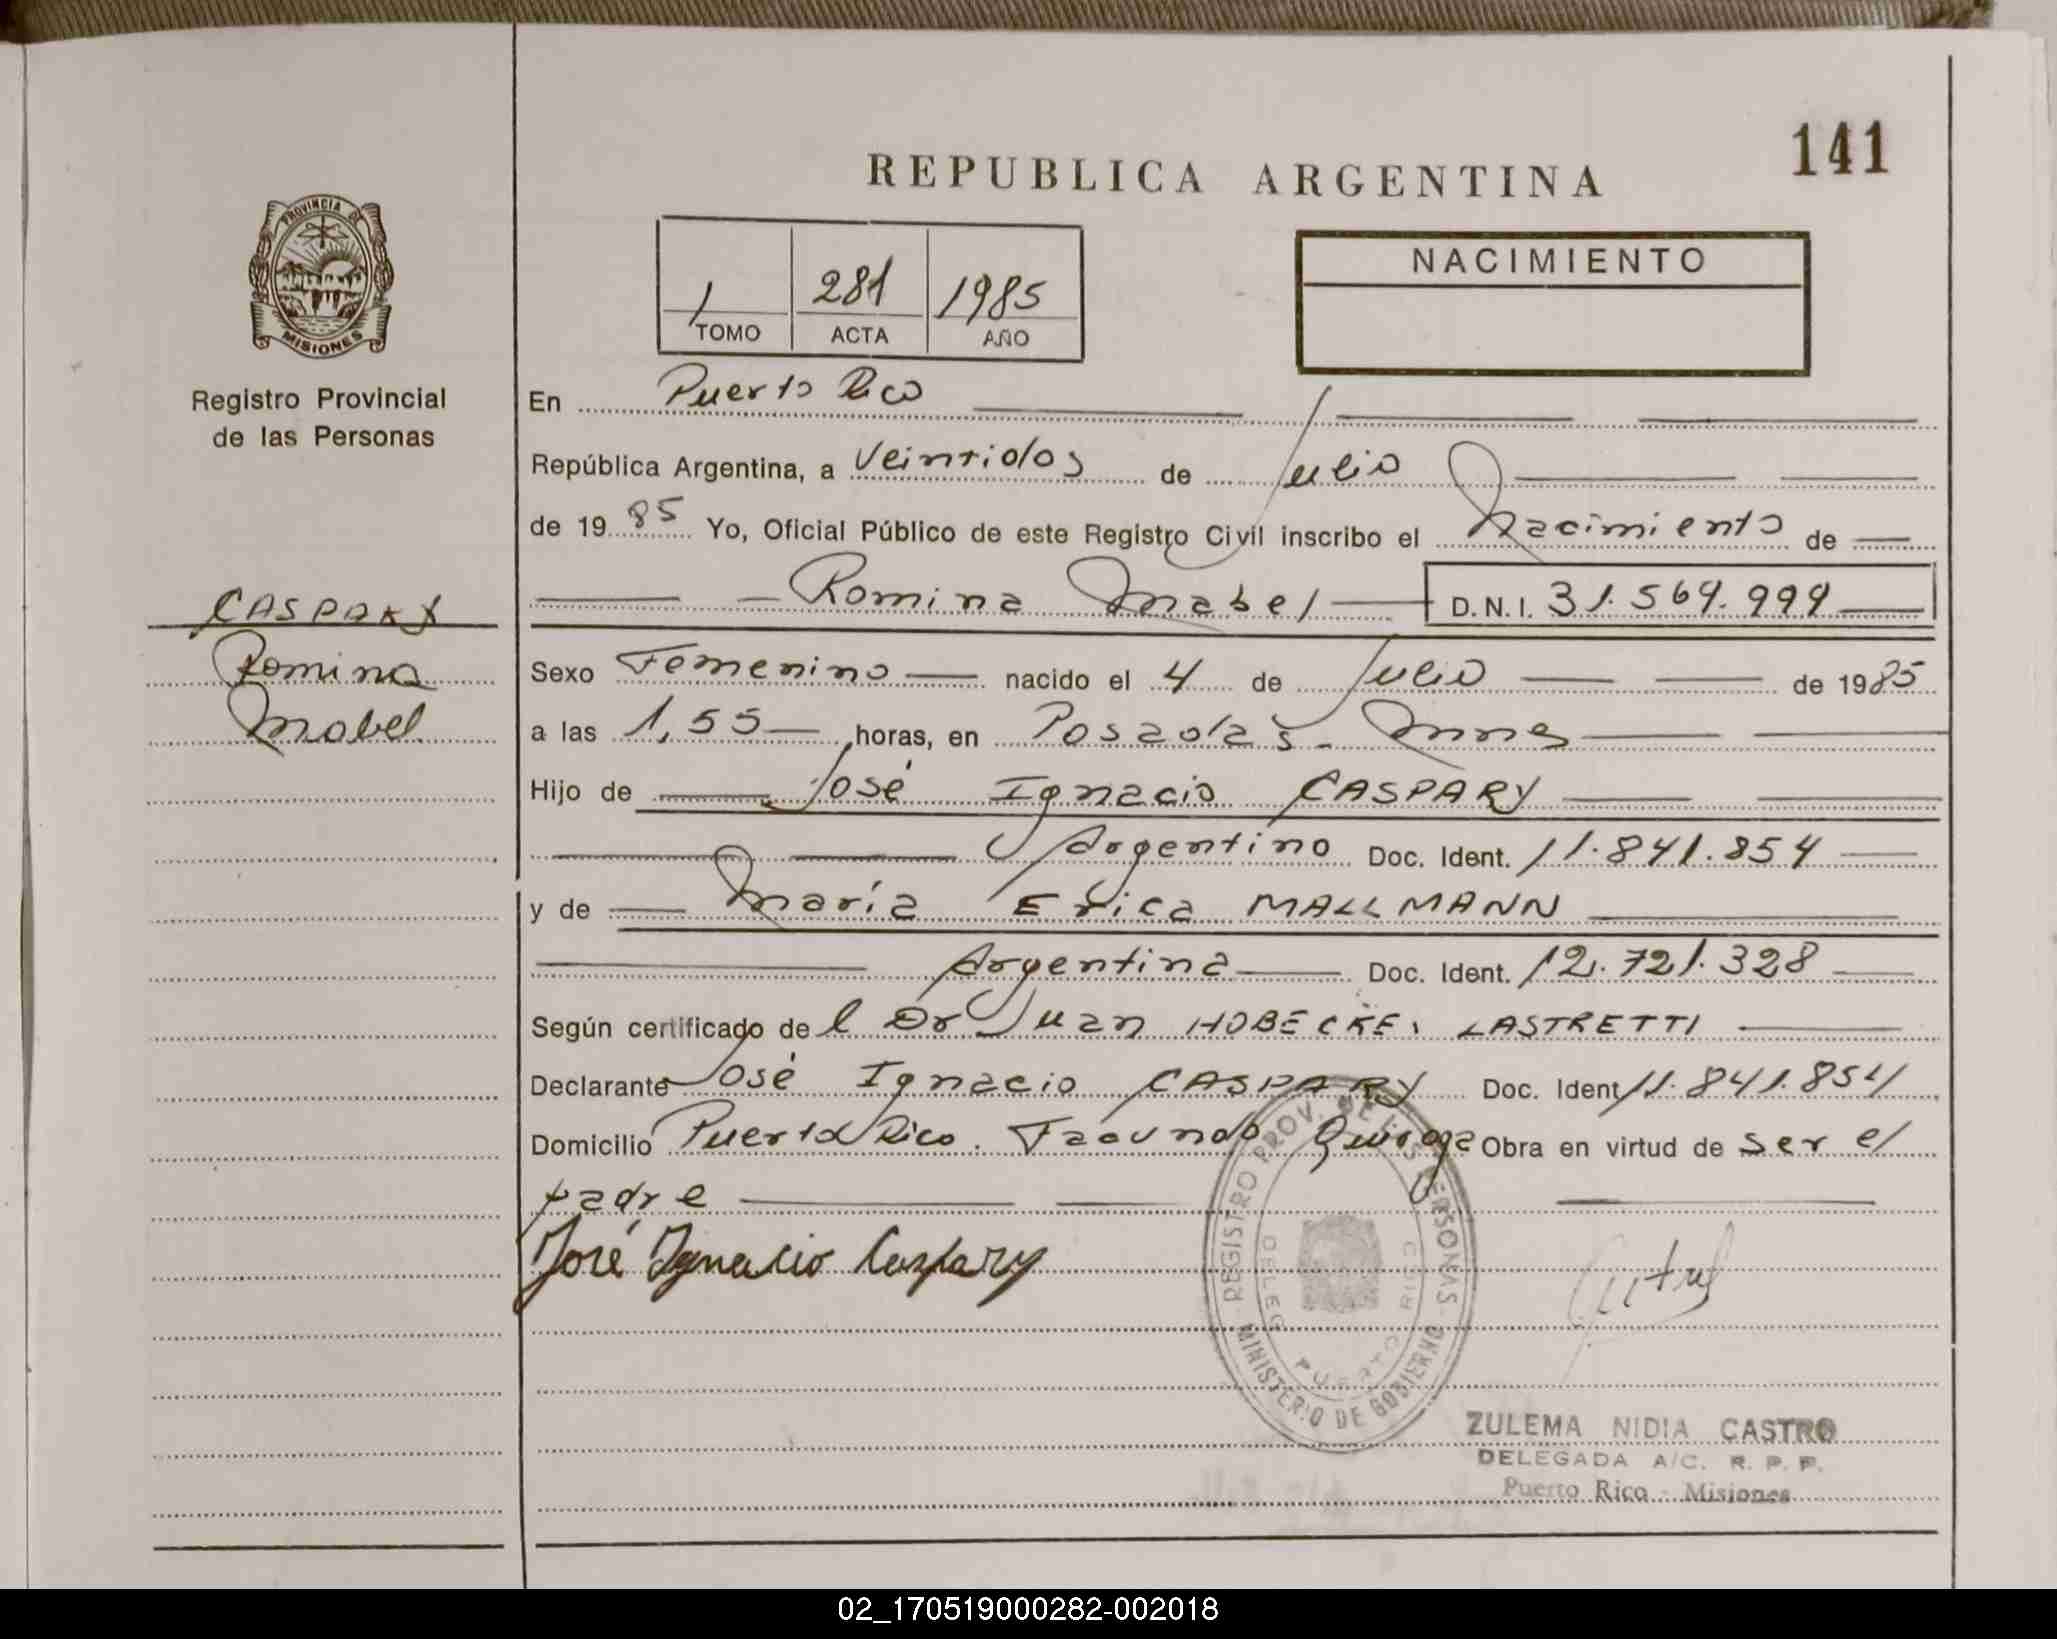 141
REPUBLICA ARGENTINA
PROVINCIA DE
MISIONES
Registro Provincial
de las Personas
1 281 1985
TOMO ACTA AÑO
NACIMIENTO
En Puerto Rico
República Argentina, a Veintidos de Julio
de 1985 Yo, Oficial Público de este Registro Civil inscribo el Nacimiento de
Romina Mabel D.N.I. 31.569.999
CASPARY
Romina
Mabel
Sexo Femenino nacido el 4 de Julio de 1985
a las 1,55 horas, en Posadas - Mnes
Hijo de José Ignacio CASPARY
Argentino Doc. Ident. 11.841.854
y de María Erica MALLMANN
Argentina Doc. Ident. 12.721.328
Según certificado del Dr Juan LASTRETTI
Declarante José Ignacio CASPARY Doc. Ident 11.841.854
Domicilio Puerto Rico. Facundo Quiroga Obra en virtud de ser el
padre
José Ignacio Caspary
REGISTRO PROV. DE LAS PERSONAS
MINISTERIO DE GOBIERNO
DELEG. PUERTO RICO
ZULEMA NIDIA CASTRO
DELEGADA A/C. R. P. P.
Puerto Rico - Misiones
02_170519000282-002018